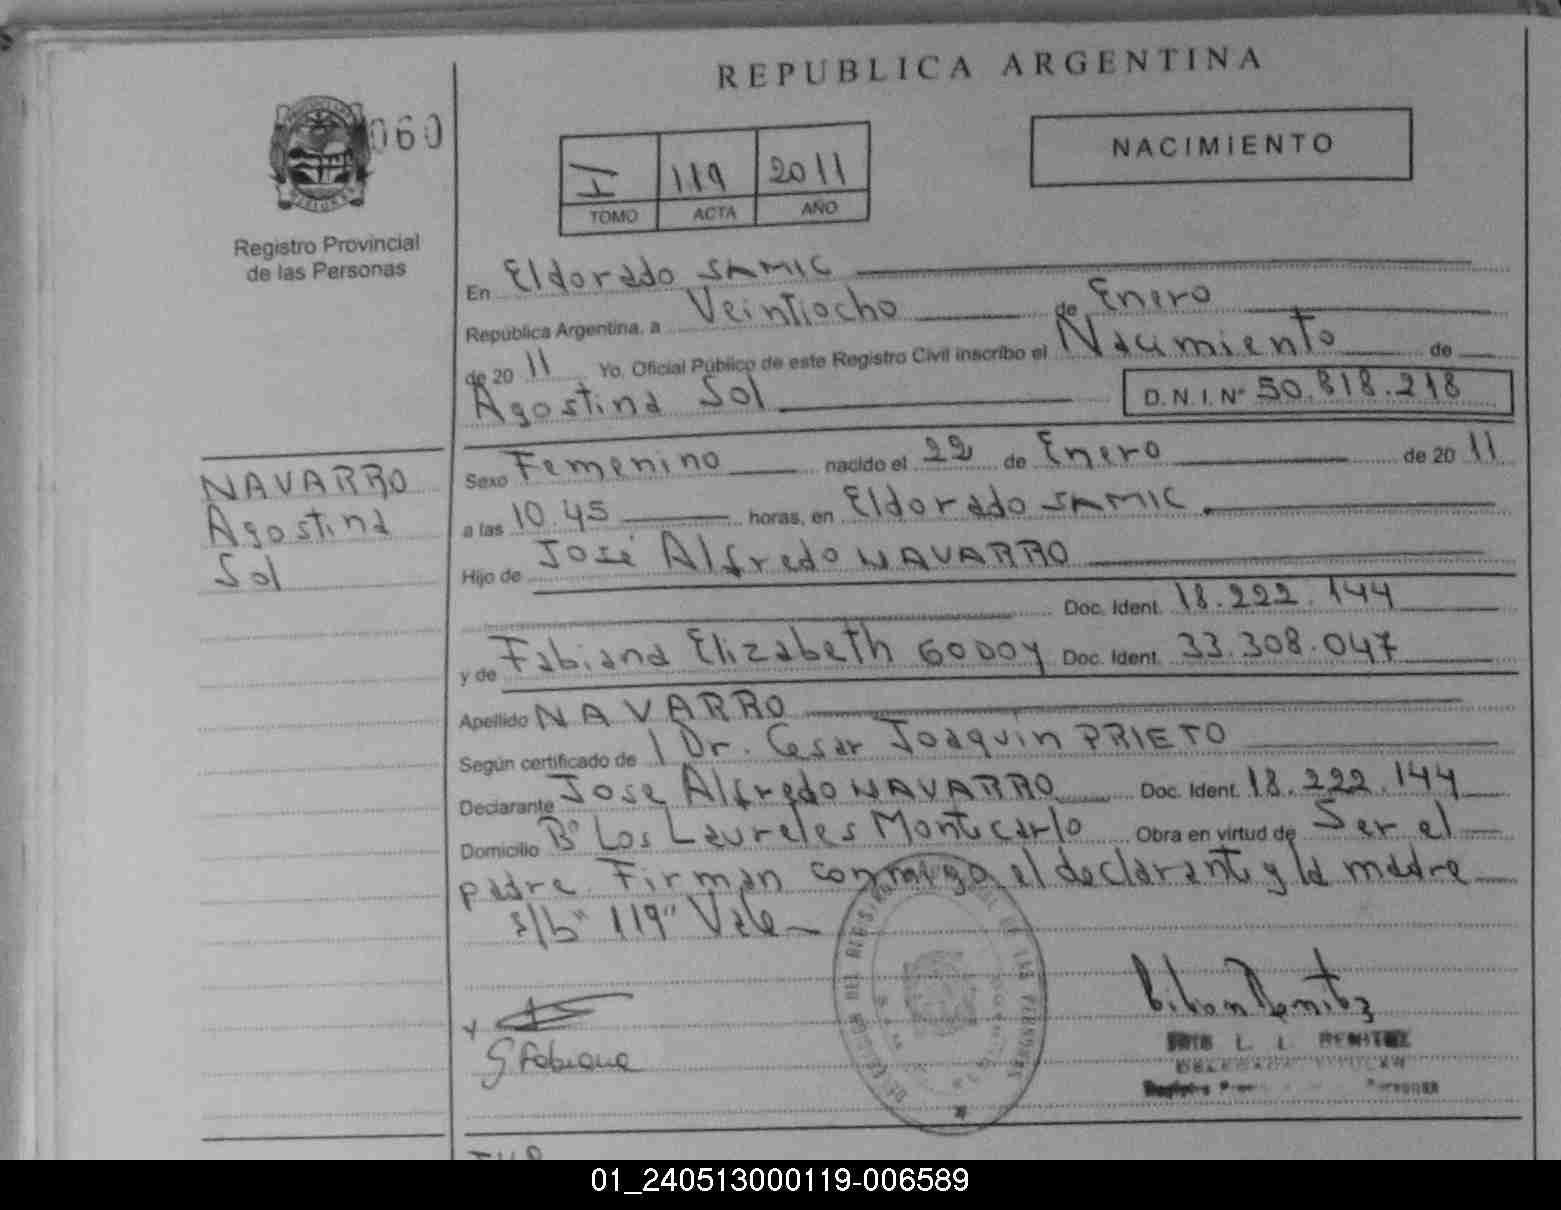 REPUBLICA ARGENTINA
060
NACIMIENTO
I 119 2011
TOMO ACTA AÑO
Registro Provincial
de las Personas
En Eldorado SAMIC
República Argentina, a Veintiocho de Enero
de 20 11 Yo, Oficial Público de este Registro Civil inscribo el Nacimiento de
Agostina Sol D.N.I. Nº 50.818.218
NAVARRO
Agostina
Sol
Sexo Femenino nacido el 22 de Enero de 20 11
a las 10.45 horas, en Eldorado SAMIC
Hijo de José Alfredo NAVARRO
Doc. Ident. 18.222.144
y de Fabiana Elizabeth GODOY Doc. Ident. 33.308.047
Apellido NAVARRO
Según certificado de Dr. Cesar Joaquin PRIETO
Declarante Jose Alfredo NAVARRO Doc. Ident. 18.222.144
Domicilio Bº Los Laureles Montecarlo Obra en virtud de Ser el
padre. Firman conmigo el declarante y la madre
s/b "119" Vale
G Fabiana
L. I. BENITEZ
01_240513000119-006589